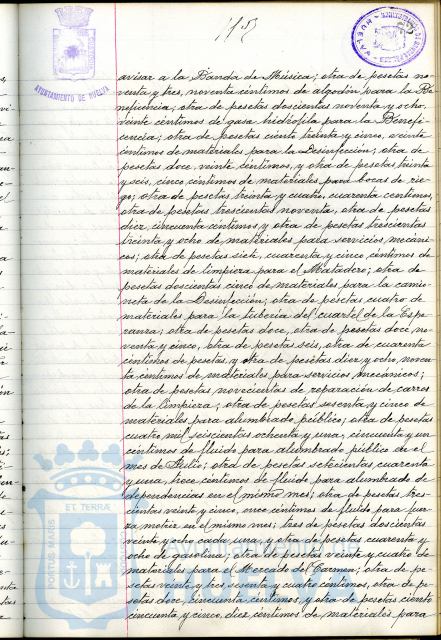 AYUNTAMIENTO DE HUELVA
avisar a la Banda de Música; otra de pesetas no-
venta y tres, noventa céntimos de algodón para la Be-
neficencia; otra de pesetas doscientas noventa y ocho,
veinte céntimos de gasa hidrófila para la Benefi-
cencia; otra de pesetas ciento treinta y cinco, veinte
céntimos de materiales para la Desinfección; otra de
pesetas doce, veinte céntimos, y otra de pesetas treinta
y seis, cinco céntimos de materiales para bocas de rie-
go; otra de pesetas treinta y cuatro, cuarenta céntimos,
otra de pesetas trescientas noventa, otra de pesetas
diez, cincuenta céntimos y otra de pesetas trescientas
treinta y ocho de materiales para servicios mecáni-
cos; otra de pesetas siete, cuarenta y cinco céntimos de
materiales de limpieza para el Matadero; otra de
pesetas doscientas cinco de materiales para la camio-
neta de la Desinfección; otra de pesetas cuatro de
materiales para la tubería del cuartel de la Espe-
ranza; otra de pesetas doce, otra de pesetas doce, no-
venta y cinco, otra de pesetas seis, otra de cuarenta
céntimos de pesetas, y otra de pesetas diez y ocho, noven-
ta céntimos de materiales para servicios mecánicos;
otra de pesetas novecientas de reparación de carros
de la limpieza; otra de pesetas sesenta y cinco de
materiales para alumbrado público; otra de pesetas
cuatro mil seiscientas ochenta y una, cincuenta y un
céntimos de fluido para alumbrado público en el
mes de Julio; otra de pesetas setecientas cuarenta
y una, trece céntimos de fluido para alumbrado de
dependencias en el mismo mes; otra de pesetas tres-
cientas veinte y cinco, once céntimos de fluido para fuer-
za motriz en el mismo mes; tres de pesetas doscientas
veinte y ocho cada una, y otra de pesetas cuarenta y
ocho de gasolina; otra de pesetas veinte y cuatro de
materiales para el Mercado del Carmen; otra de pe-
setas veinte y tres, sesenta y cuatro céntimos, otra de pe-
setas doce, cincuenta céntimos, y otra de pesetas ciento
cincuenta y cinco, diez céntimos de materiales para
PORTUS MARIS ET TERRÆ